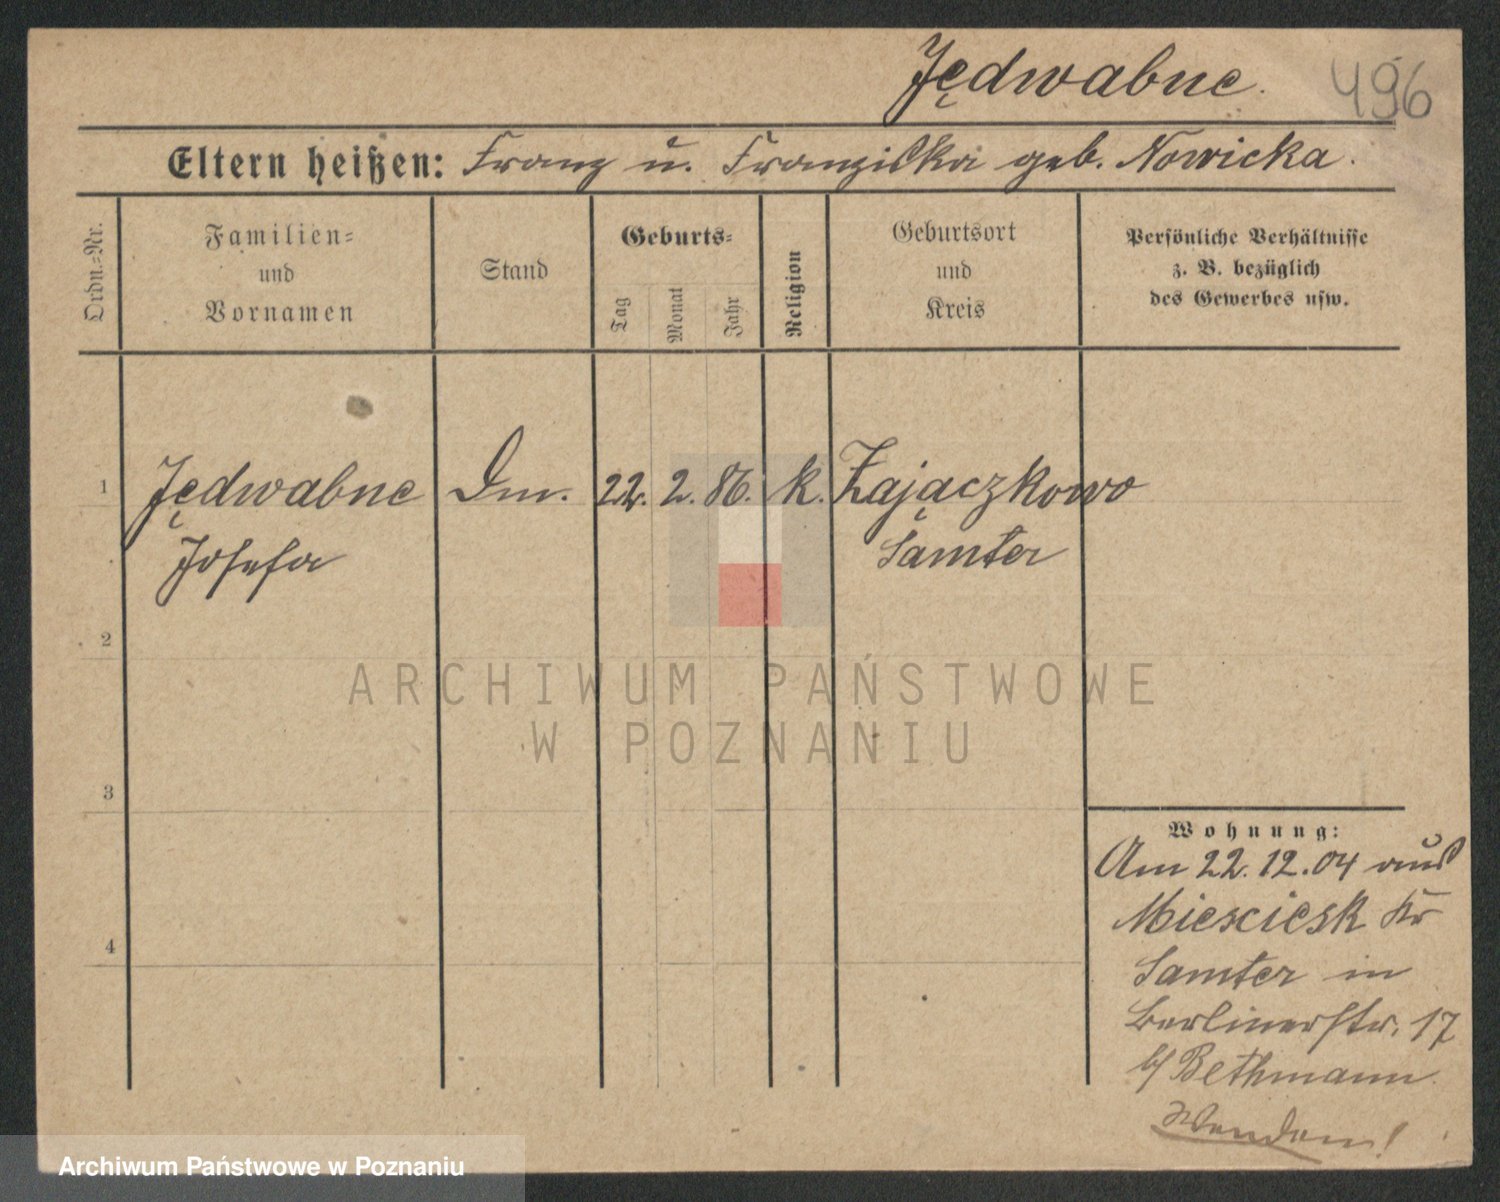 Jędwabne.
496
Eltern heißen: Franz u. Franziska geb. Nowicka.
Ordn.-Nr.
Familien-
und
Vornamen
Stand
Geburts-
Tag
Monat
Jahr
Religion
Geburtsort
und
Kreis
Persönliche Verhältnisse
z. B. bezüglich
des Gewerbes usw.
1 Jędwabne Dm. 22. 2. 86. k. Zajączkowo
Josefa Samter
2
3
4
Wohnung:
Am 22.12.04 aus
Miesciesk Kr
Samter in
Berlinerstr. 17
b/ Bethmann
Wenden!
ARCHIWUM PAŃSTWOWE
W POZNANIU
Archiwum Państwowe w Poznaniu